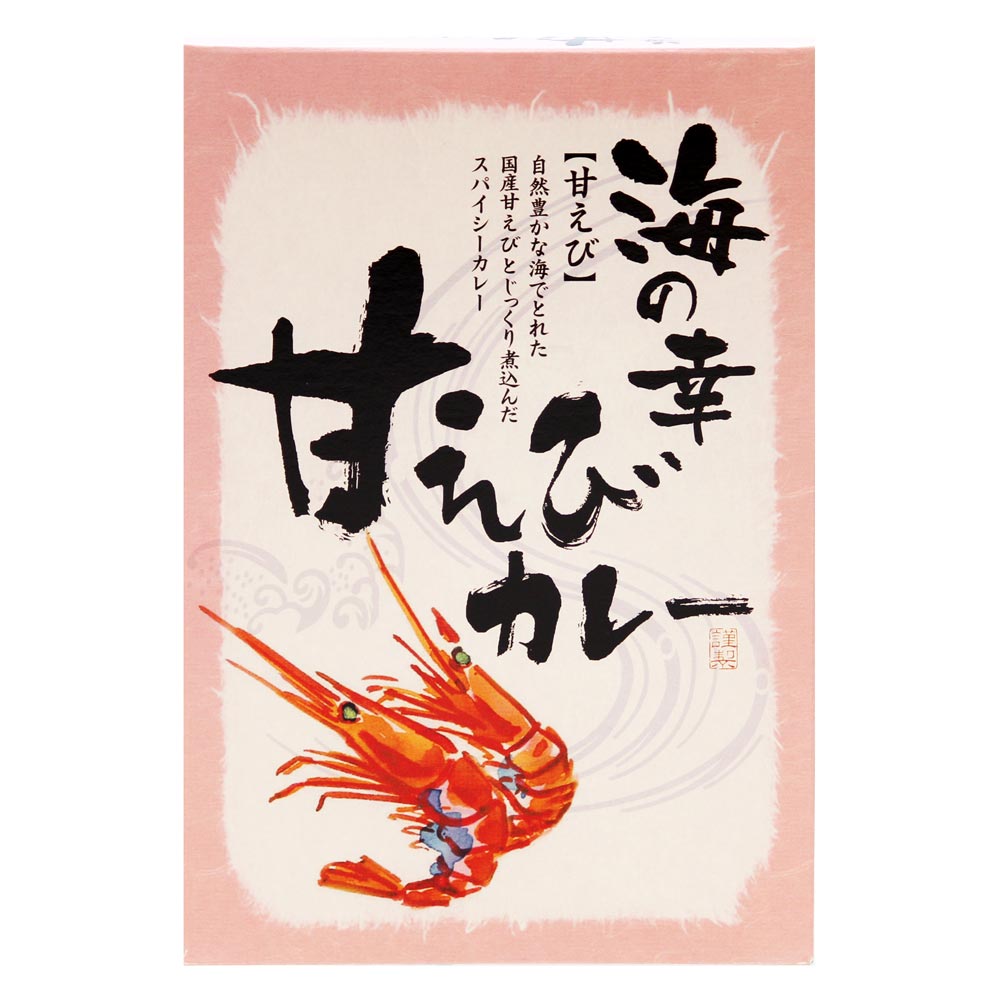 海の幸
甘えび
カレー
【甘えび】
自然豊かな海でとれた
国産甘えびとじっくり煮込んだ
スパイシーカレー
謹製